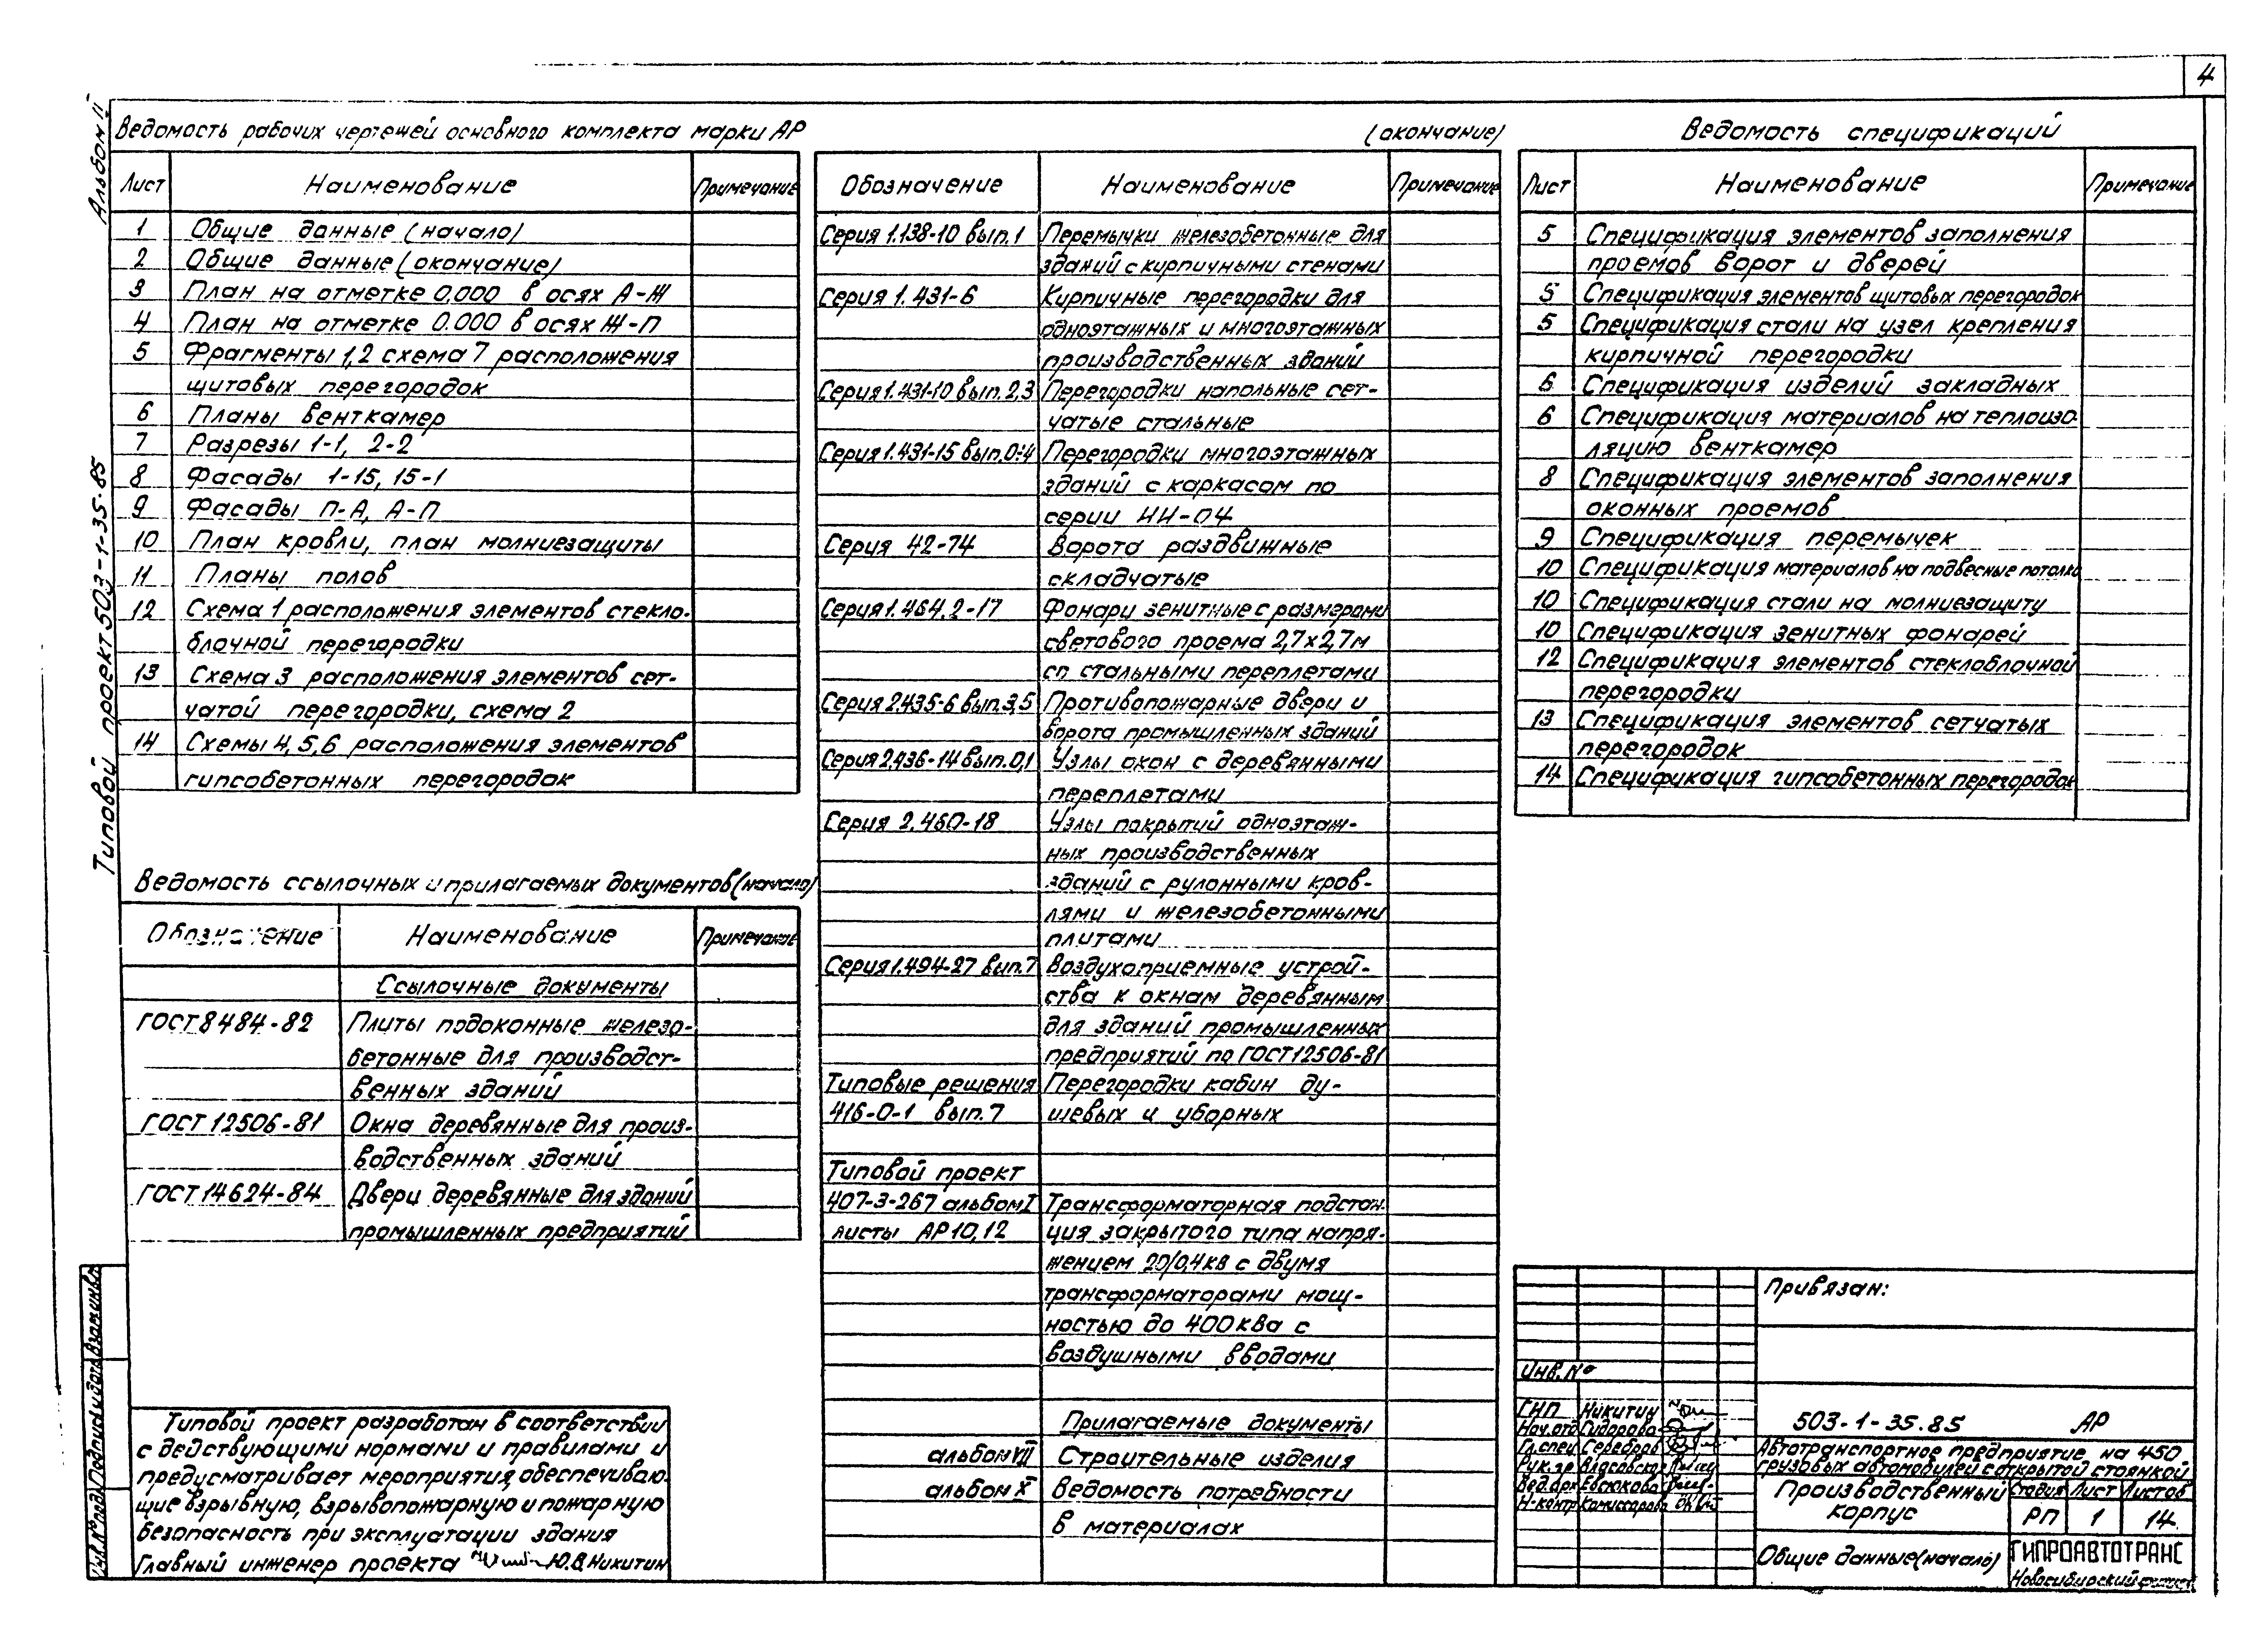 4
Альбом II
Типовой проект 503-1-35.85
Ведомость рабочих чертежей основного комплекта марки АР
Лист Наименование Примечание
1 Общие данные (начало)
2 Общие данные (окончание)
3 План на отметке 0.000 в осях А-Ж
4 План на отметке 0.000 в осях Ж-П
5 Фрагменты 1,2 схема 7 расположения
щитовых перегородок
6 Планы венткамер
7 Разрезы 1-1, 2-2
8 Фасады 1-15, 15-1
9 Фасады П-А, А-П
10 План кровли, план молниезащиты
11 Планы полов
12 Схема 1 расположения элементов стекло-
блочной перегородки
13 Схема 3 расположения элементов сет-
чатой перегородки, схема 2
14 Схемы 4,5,6 расположения элементов
гипсобетонных перегородок
Ведомость ссылочных и прилагаемых документов (начало)
Обозначение Наименование Примечание
Ссылочные документы
ГОСТ 8484-82 Плиты подоконные железо-
бетонные для производст-
венных зданий
ГОСТ 12506-81 Окна деревянные для произ-
водственных зданий
ГОСТ 14624-84 Двери деревянные для зданий
промышленных предприятий
Типовой проект разработан в соответствии
с действующими нормами и правилами и
предусматривает мероприятия, обеспечиваю-
щие взрывную, взрывопожарную и пожарную
безопасность при эксплуатации здания
Главный инженер проекта Ю.В.Никитин
Инв.№ подл. Подпись и дата Взам.инв.№
(окончание)
Обозначение Наименование Примечание
Серия 1.138-10 вып.1 Перемычки железобетонные для
зданий с кирпичными стенами
Серия 1.431-6 Кирпичные перегородки для
одноэтажных и многоэтажных
производственных зданий
Серия 1.431-10 вып.2,3 Перегородки напольные сет-
чатые стальные
Серия 1.431-15 вып.0÷4 Перегородки многоэтажных
зданий с каркасом по
серии ИИ-04
Серия 42-74 Ворота раздвижные
складчатые
Серия 1.464.2-17 Фонари зенитные с размерами
светового проема 2,7х2,7м
сп стальными переплетами
Серия 2.435-6 вып.3,5 Противопожарные двери и
ворота промышленных зданий
Серия 2.436-14 вып.0,1 Узлы окон с деревянными
переплетами
Серия 2.460-18 Узлы покрытий одноэтаж-
ных производственных
зданий с рулонными кров-
лями и железобетонными
плитами
Серия 1.494-27 вып.7 Воздухоприемные устрой-
ства к окнам деревянным
для зданий промышленных
предприятий по ГОСТ 12506-81
Типовые решения Перегородки кабин ду-
416-0-1 вып.7 шевых и уборных
Типовой проект
407-3-267 альбом I Трансформаторная подстан-
листы АР10,12 ция закрытого типа напря-
жением 20/0,4кв с двумя
трансформаторами мощ-
ностью до 400ква с
воздушными вводами
Прилагаемые документы
альбом VII Строительные изделия
альбом X Ведомость потребности
в материалах
Ведомость спецификаций
Лист Наименование Примечание
5 Спецификация элементов заполнения
проемов ворот и дверей
5 Спецификация элементов щитовых перегородок
5 Спецификация стали на узел крепления
кирпичной перегородки
6 Спецификация изделий закладных
6 Спецификация материалов на теплоизо-
ляцию венткамер
8 Спецификация элементов заполнения
оконных проемов
9 Спецификация перемычек
10 Спецификация материалов на подвесные потолки
10 Спецификация стали на молниезащиту
10 Спецификация зенитных фонарей
12 Спецификация элементов стеклоблочной
перегородки
13 Спецификация элементов сетчатых
перегородок
14 Спецификация гипсобетонных перегородок
Привязан:
Инв.№
ГИП Никитин
Нач.отд Сидорова
Гл.спец Серебров
Рук.гр.
Вед.арх Евсюкова
Н.контр Комиссарова
503-1-35.85 АР
Автотранспортное предприятие на 450
грузовых автомобилей с открытой стоянкой
Производственный
корпус
Стадия Лист Листов
РП 1 14
Общие данные (начало)
ГИПРОАВТОТРАНС
Новосибирский филиал